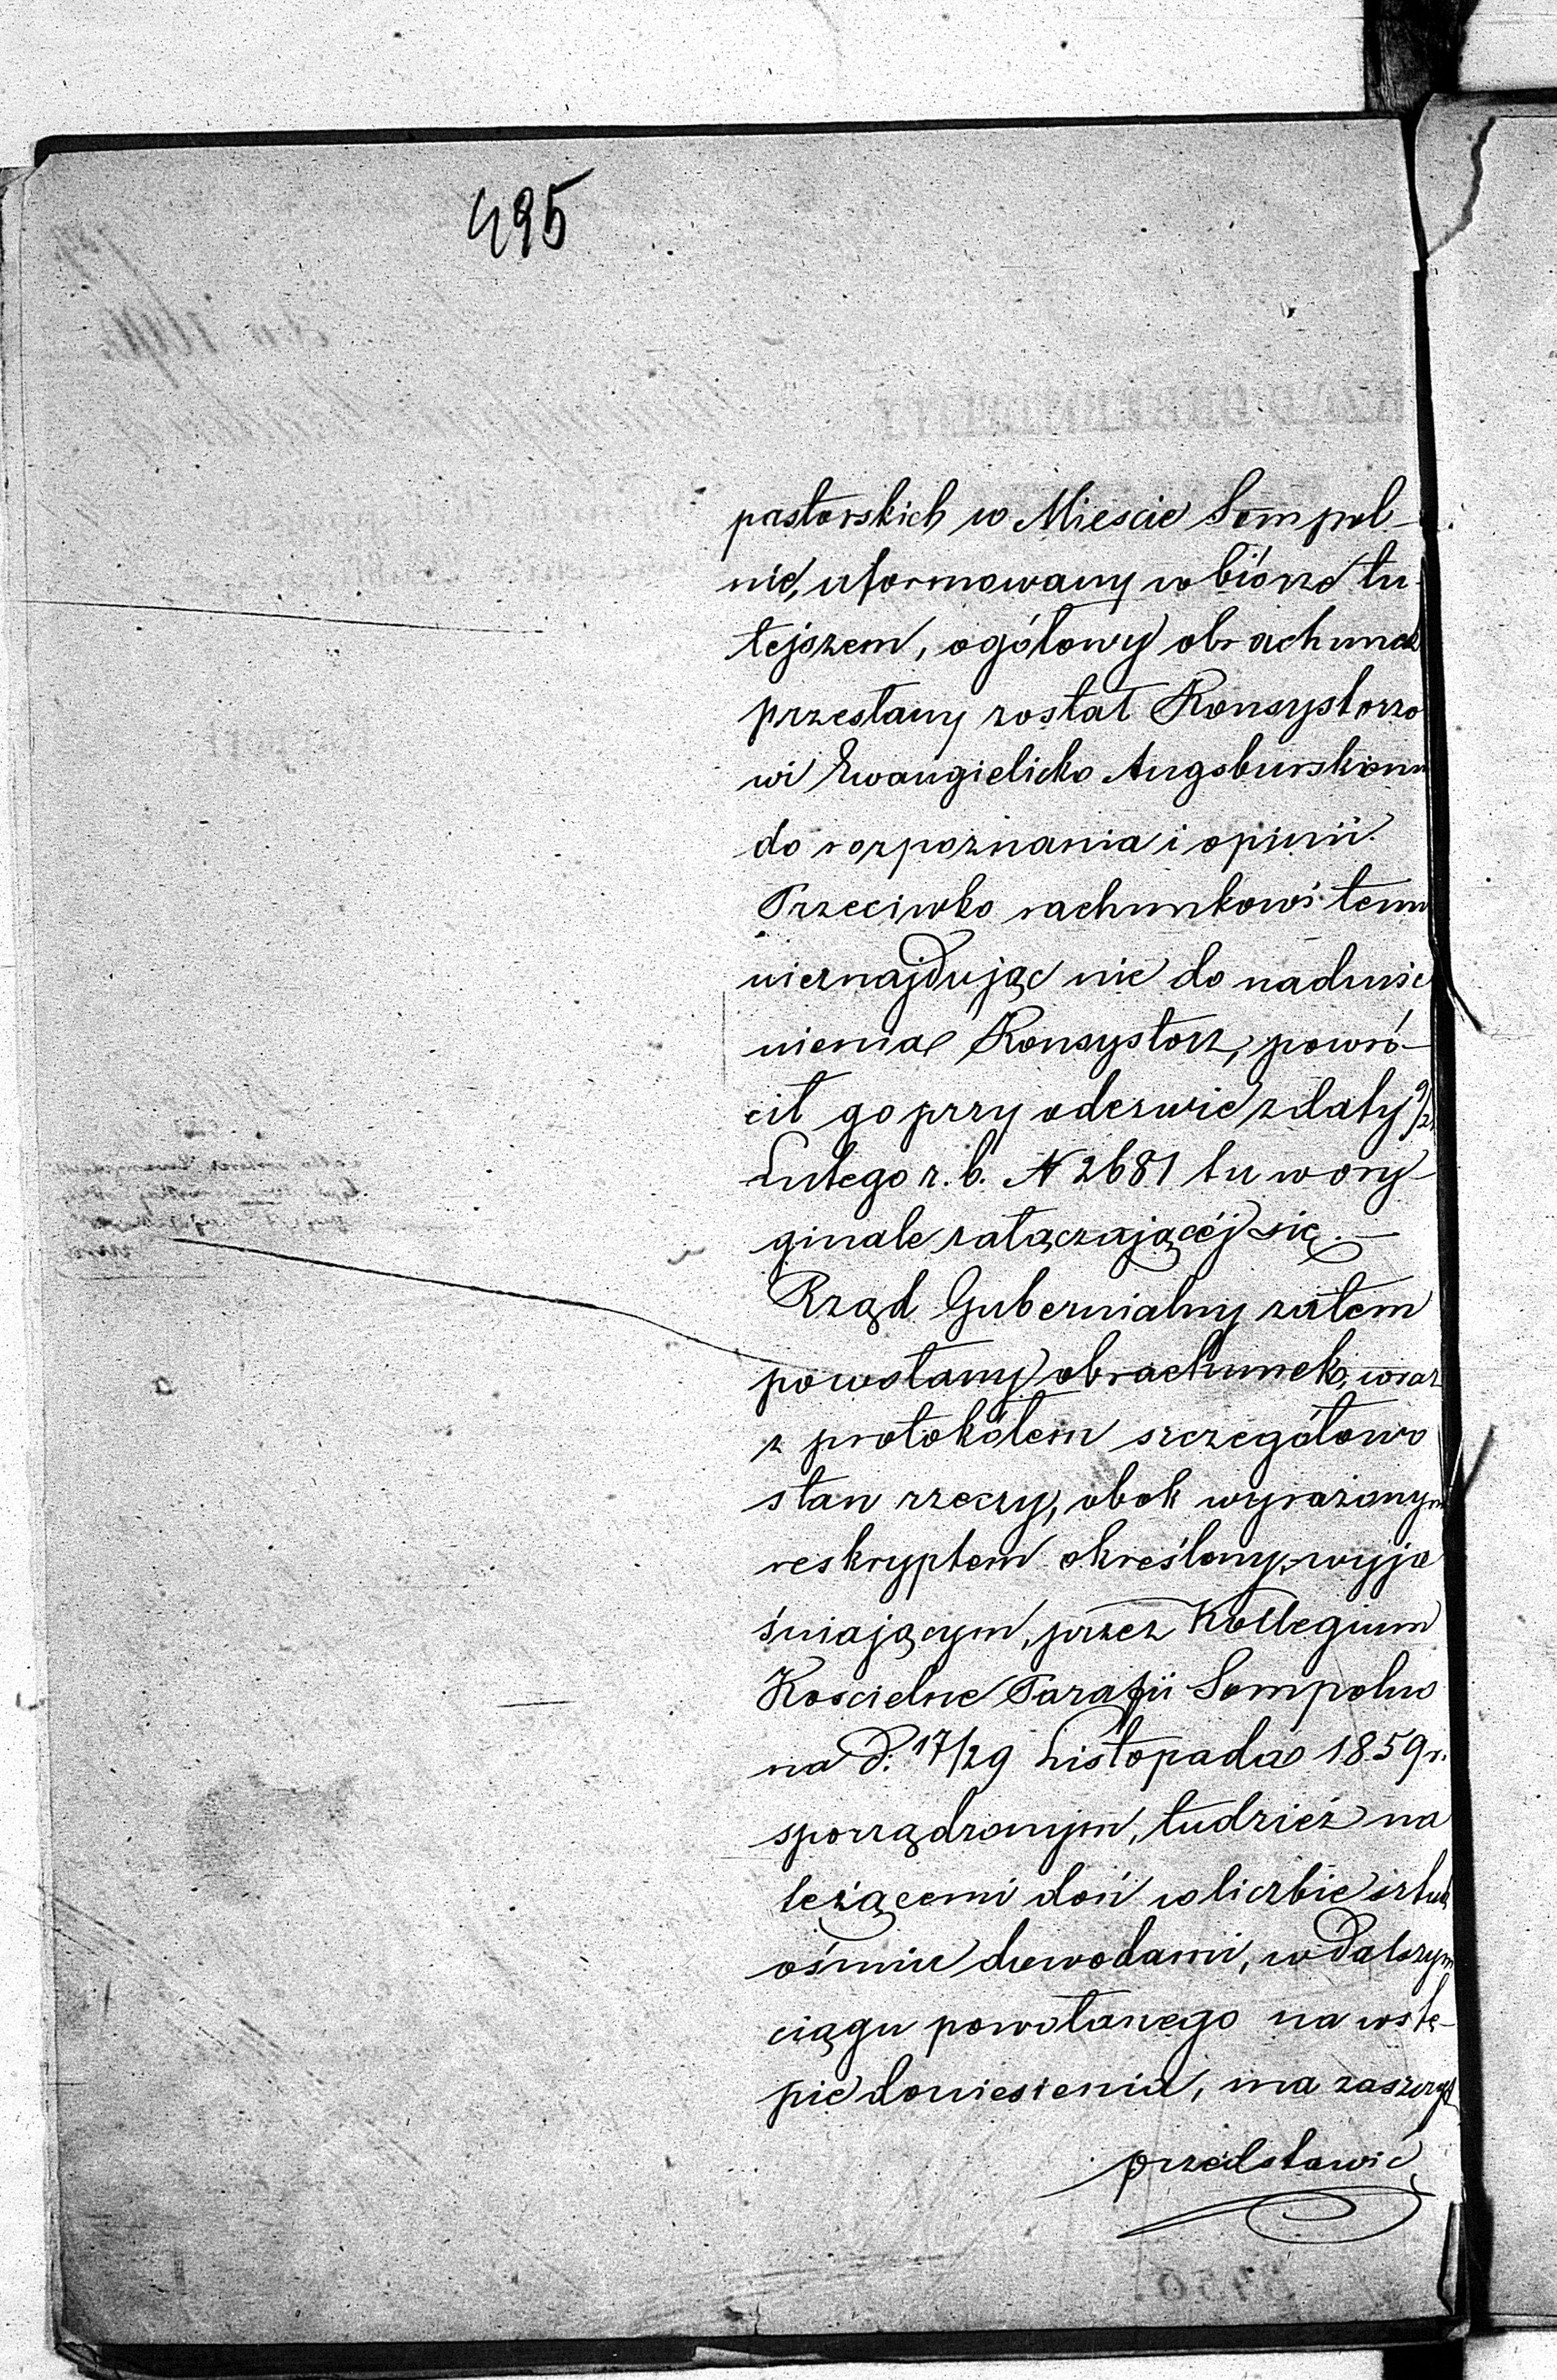 495
pastorskich w Mieście Sompol-
nie, uformowany w biórze tu-
tejszem, ogółowy obrachunek
przesłany został Konsystorzo
wi Ewangielicko Augsburskiemu
do rozpoznania i opinii.
Przeciwko rachunkowi temu
nieznajdując nic do nadmie
nienia Konsystorz, powró-
cił go przy odezwie z daty 9/21
Lutego r. b. N 2681 tu w ory-
ginale załączającéj się. —
Rząd Gubernialny zatem
powołany obrachunek, wraz
z protokółem szczegółowo
stan rzeczy, obok wyrażonym
reskryptem określony, wyja
śniającym, przez Kollegium
Koscielne Parafii Sompolno
na d. 17/29 Listopada 1859 r.
sporządzonym, tudzież na
leżącemi doń w liczbie sztuk
ośmiu dowodami, w dalszym
ciągu powołanego na wstę-
pie doniesienia, ma zaszczyt
przedstawić